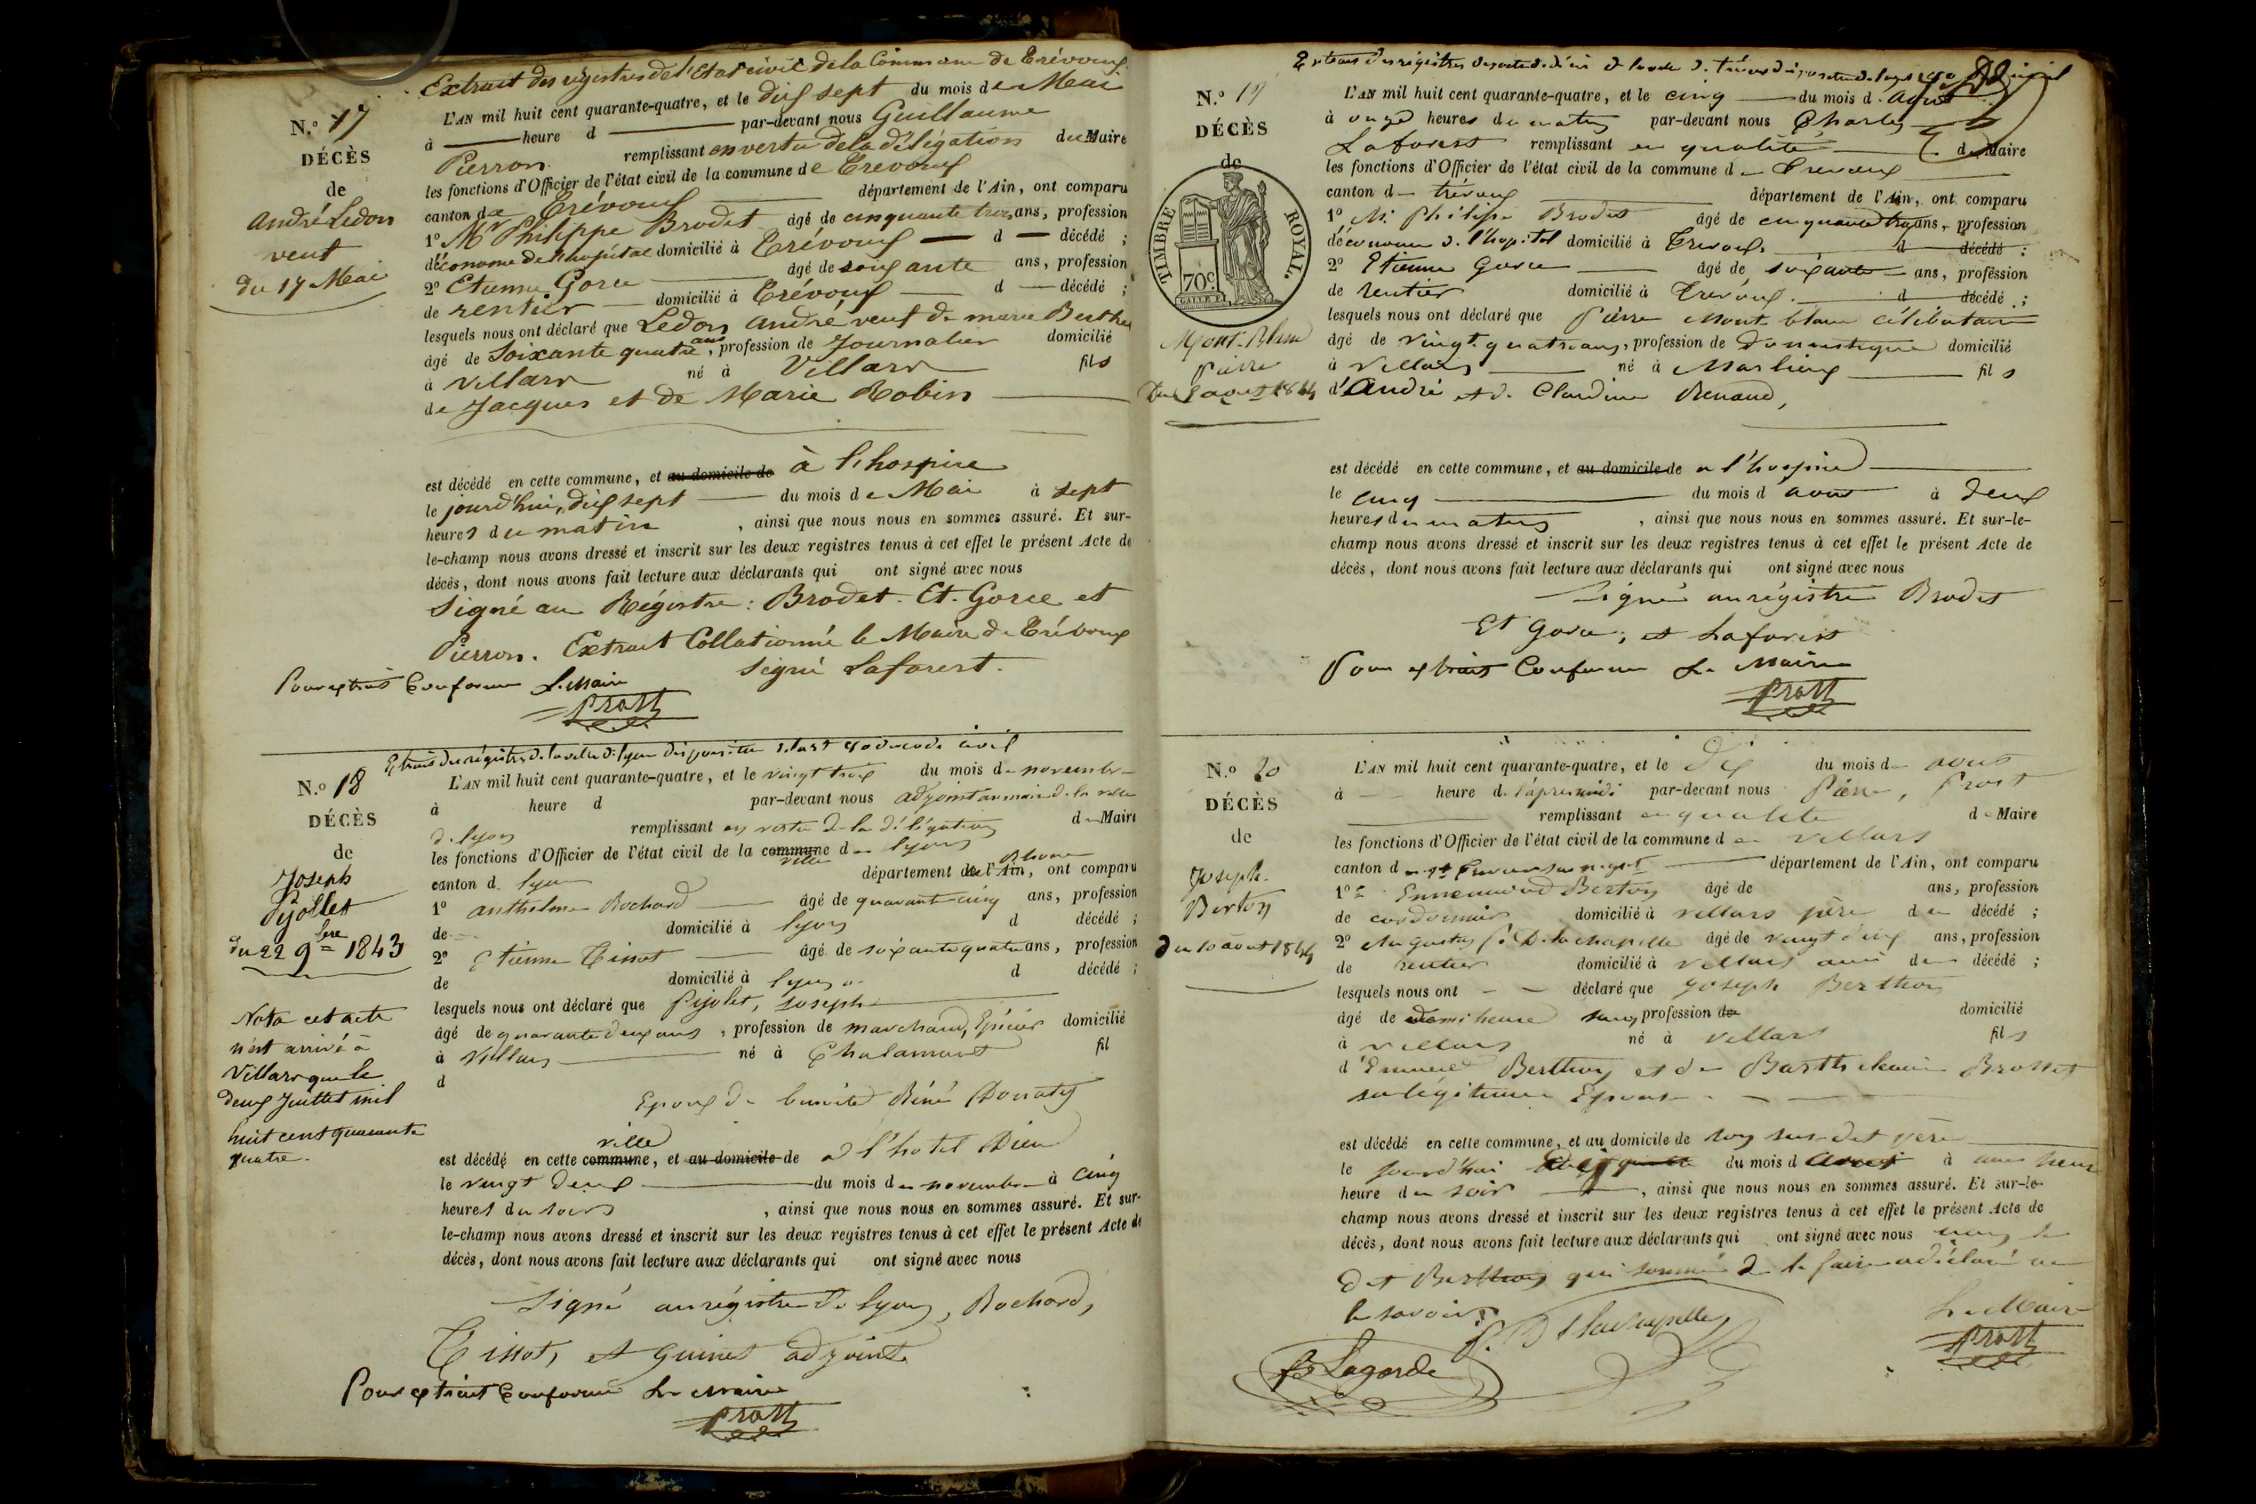 Extrait des régistres de l'Etat civil de la Commune de Trévoux
N.º 17
DÉCÈS
de
André Ledon
veuf
du 17 Mai
L'AN mil huit cent quarante-quatre, et le dix sept du mois de Mai
à heure d par-devant nous Guillaume
Pierron remplissant en vertu de la délégation du Maire
les fonctions d'Officier de l'état civil de la commune de Trevoux
canton de Trévoux département de l'Ain, ont comparu
1º Mr Philippe Brodet âgé de cinquante trois ans, profession
d'économe de l'hopital domicilié à Trévoux d décédé ;
2º Etienne Gorce âgé de soixante ans, profession
de rentier domicilié à Trévoux d décédé ;
lesquels nous ont déclaré que Ledon André veuf de marie Berthet
âgé de Soixante quatre ans, profession de Journalier domicilié
à Villars né à Villars fils
de Jacques et de Marie Robin
est décédé en cette commune, et au domicile de à l'hospice
le jourd'hui, dix sept du mois de Mai à sept
heures du matin , ainsi que nous nous en sommes assuré. Et sur-
le-champ nous avons dressé et inscrit sur les deux registres tenus à cet effet le présent Acte de
décès, dont nous avons fait lecture aux déclarants qui ont signé avec nous
Signé au Régistre : Brodet. Et. Gorce et
Pierron. Extrait Collationné le Maire de Trévoux
Signé Laforest.
Pour extrait Conforme Le Maire
Prost
Extrait du régistre de la ville de lyon 40 du code civil
N.º 18
DÉCÈS
de
Joseph
Pijollet
du 22 9bre 1843
Nota cet acte
n'est arrivé à
Villars que le
deux Juillet mil
huit cent quarante
quatre.
L'AN mil huit cent quarante-quatre, et le vingt trois du mois de novembre
à heure d par-devant nous adjoint au maire de la ville
de lyon remplissant en vertu de la délégation du Maire
les fonctions d'Officier de l'état civil de la commune ville de lyon
canton d lyon département de l'Ain Rhone, ont comparu
1º anthelme Rochard âgé de quarante cinq ans, profession
de domicilié à lyon d décédé ;
2º Etienne Tissot âgé de soixante quatre ans, profession
de domicilié à lyon d décédé ;
lesquels nous ont déclaré que Pijolet, Joseph
âgé de quarante deux ans, profession de marchand, Epicier domicilié
à Villars né à Chalamont fil
d
Epoux de benoite Réné Donatz
est décédé en cette commune ville, et au domicile de à l'hotel Dieu
le vingt deux du mois de novembre à cinq
heures du soir , ainsi que nous nous en sommes assuré. Et sur-
le-champ nous avons dressé et inscrit sur les deux registres tenus à cet effet le présent Acte de
décès, dont nous avons fait lecture aux déclarants qui ont signé avec nous
Signé au régistre de lyon, Rochard,
Tissot, et Guinet adjoint
Pour extrait Conforme Le Maire
Prost
Extrait des régistres des actes de décès de la ville de Trévoux
N.º 19
DÉCÈS
de
TIMBRE ROYAL.
70c
Mont-Blanc
Pierre
Du 5 aout 1844
L'AN mil huit cent quarante-quatre, et le cinq du mois d'Aout
à onze heures du matin par-devant nous Charles
Laforest remplissant en qualité de Maire
les fonctions d'Officier de l'état civil de la commune de Trevoux
canton de trévoux département de l'Ain, ont comparu
1º Mr Philipe Brodet âgé de cinquante trois ans, profession
d'économe de l'hopital domicilié à Trevoux. d décédé ;
2º Etienne Gorce âgé de soixante ans, profession
de rentier domicilié à Trévoux. d décédé ;
lesquels nous ont déclaré que Pierre Mont blanc célibataire
âgé de vingt quatre ans, profession de Domestique domicilié
à Villars né à Marlieux fils
d'André et de Claudine Renaud,
est décédé en cette commune, et au domicile de a l'hospice
le cinq du mois d'aout à deux
heures du matin , ainsi que nous nous en sommes assuré. Et sur-le-
champ nous avons dressé et inscrit sur les deux registres tenus à cet effet le présent Acte de
décès, dont nous avons fait lecture aux déclarants qui ont signé avec nous
Signé au régistre Brodet
Et Gorce, et Laforest
Pour extrait Conforme Le Maire
Prost
N.º 20
DÉCÈS
de
Joseph
Berton
du 10 aout 1844
L'AN mil huit cent quarante-quatre, et le Dix du mois d aout
à heure de l'après midi par-devant nous Pierre, Prost
remplissant en qualité de Maire
les fonctions d'Officier de l'état civil de la commune de Villars
canton de département de l'Ain, ont comparu
1º Ennemond Berton âgé de ans, profession
de cordonnier domicilié à villars père du décédé ;
2º Augustin P. Delachapelle âgé de vingt deux ans, profession
de rentier domicilié à villars ami du décédé ;
lesquels nous ont déclaré que Joseph Berthon
âgé de demi heure sans profession de domicilié
à villars né à villars fils
d'Ennemond Berthon et de Barthelemie Brossat
sa légitime Epouse
est décédé en cette commune, et au domicile de son sus dit père
le jourd'hui dix du mois d aout à une heure
heure du soir , ainsi que nous nous en sommes assuré. Et sur-le-
champ nous avons dressé et inscrit sur les deux registres tenus à cet effet le présent Acte de
décès, dont nous avons fait lecture aux déclarants qui ont signé avec nous non le
dit Berthon qui sommé de le faire a déclaré ne
le savoir
P. Delachapelle
Le Maire
Prost
B Lagarde